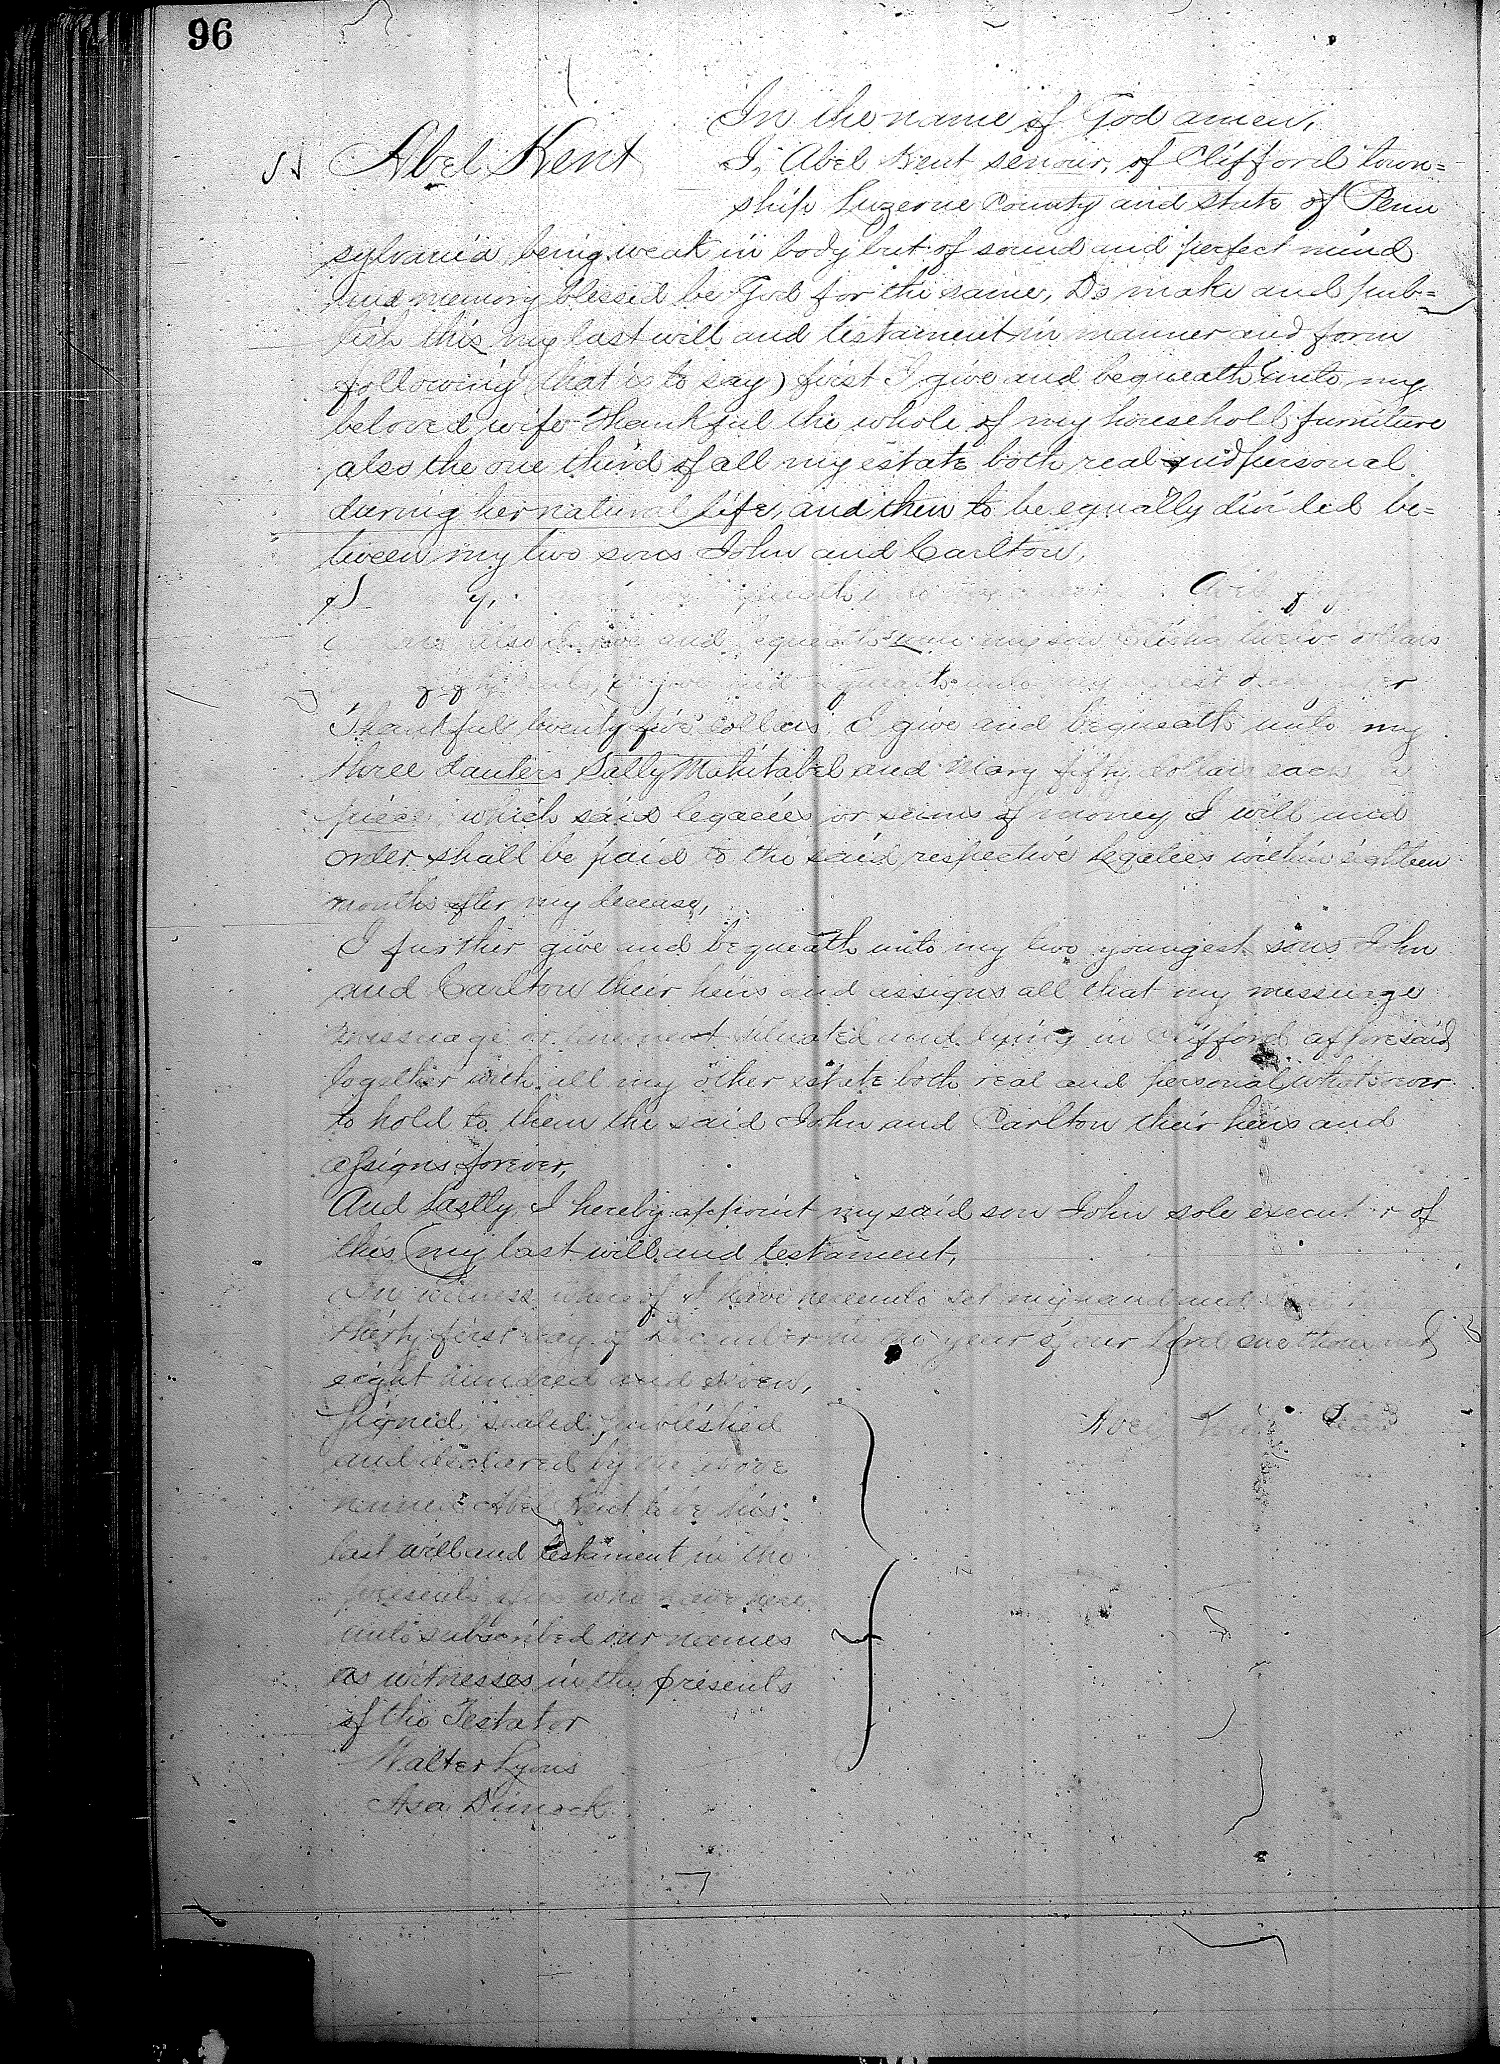 96
In the name of God amen,
Abel Kent
I, Abel Kent senour, of Clifford town=
ship Luzerne County and state of Penn
sylvania, being weak in body but of sound and perfect mind
and memory blessed be God for the same, Do make and pub=
lish this my last will and testament in manner and form
following (that is to say) first I give and bequeath unto my
beloved wife Thankful the whole of my household furniture
also the one third of all my estate both real and personal
during her natural life, and then to be equally divided be=
tween my two sons John and Carlton,
Abel fifty
dollars also I give and bequeath unto my son Elisha twelve dollars
fifty cents, I give and bequeath unto my eldest
Thankful twenty five dollars, I give and bequeath unto my
three dauters Sally Mahitabel and Mary fifty dollars each a
piece, which said legacies or sums of money I will and
order shall be paid to the said respective legatees within eighteen
months after my decease,
I further give and bequeath unto my two youngest sons John
and Carlton their heirs and assigns all that my messuage
messuage or tenement situated and lying in Clifford afforesaid
together with all my other estate both real and personal whatsoever
to hold to them the said John and Carlton their heirs and
assigns forever,
And lastly, I hereby appoint my said son John sole executor of
this my last will and testament,
In witness whereof I have hereunto set my hand and
thirty first day of December in the year of our Lord one thousand
eight hundred and seven,
Signed, sealed, published
and declared by the above
named Abel Kent to be his
last will and testament in the
presents of us who have here
unto subscribed our names
as witnesses in the presents
of the Testator
Abel Kent Seal
Walter Lyons
Asa Dimock